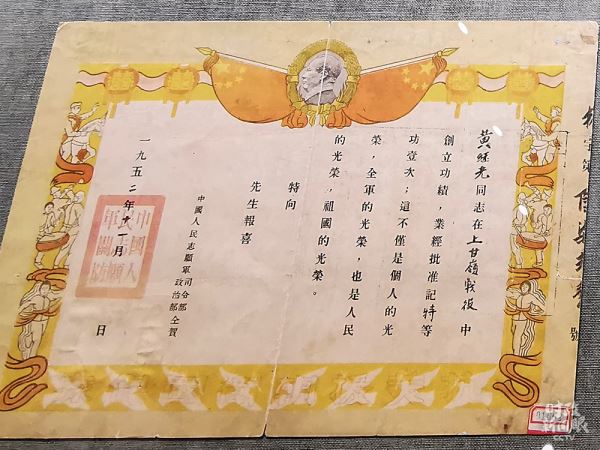 號
黄継光同志在上甘嶺戰役中
創立功績，業經批准記特等
功壹次；這不僅是個人的光
榮，全軍的光榮，也是人民
的光榮，祖國的光榮。
特向
先生報喜
中國人民志願軍司令部
政治部仝賀
一九五二年十一月 日
中國人
民志願
軍關防
CCTV